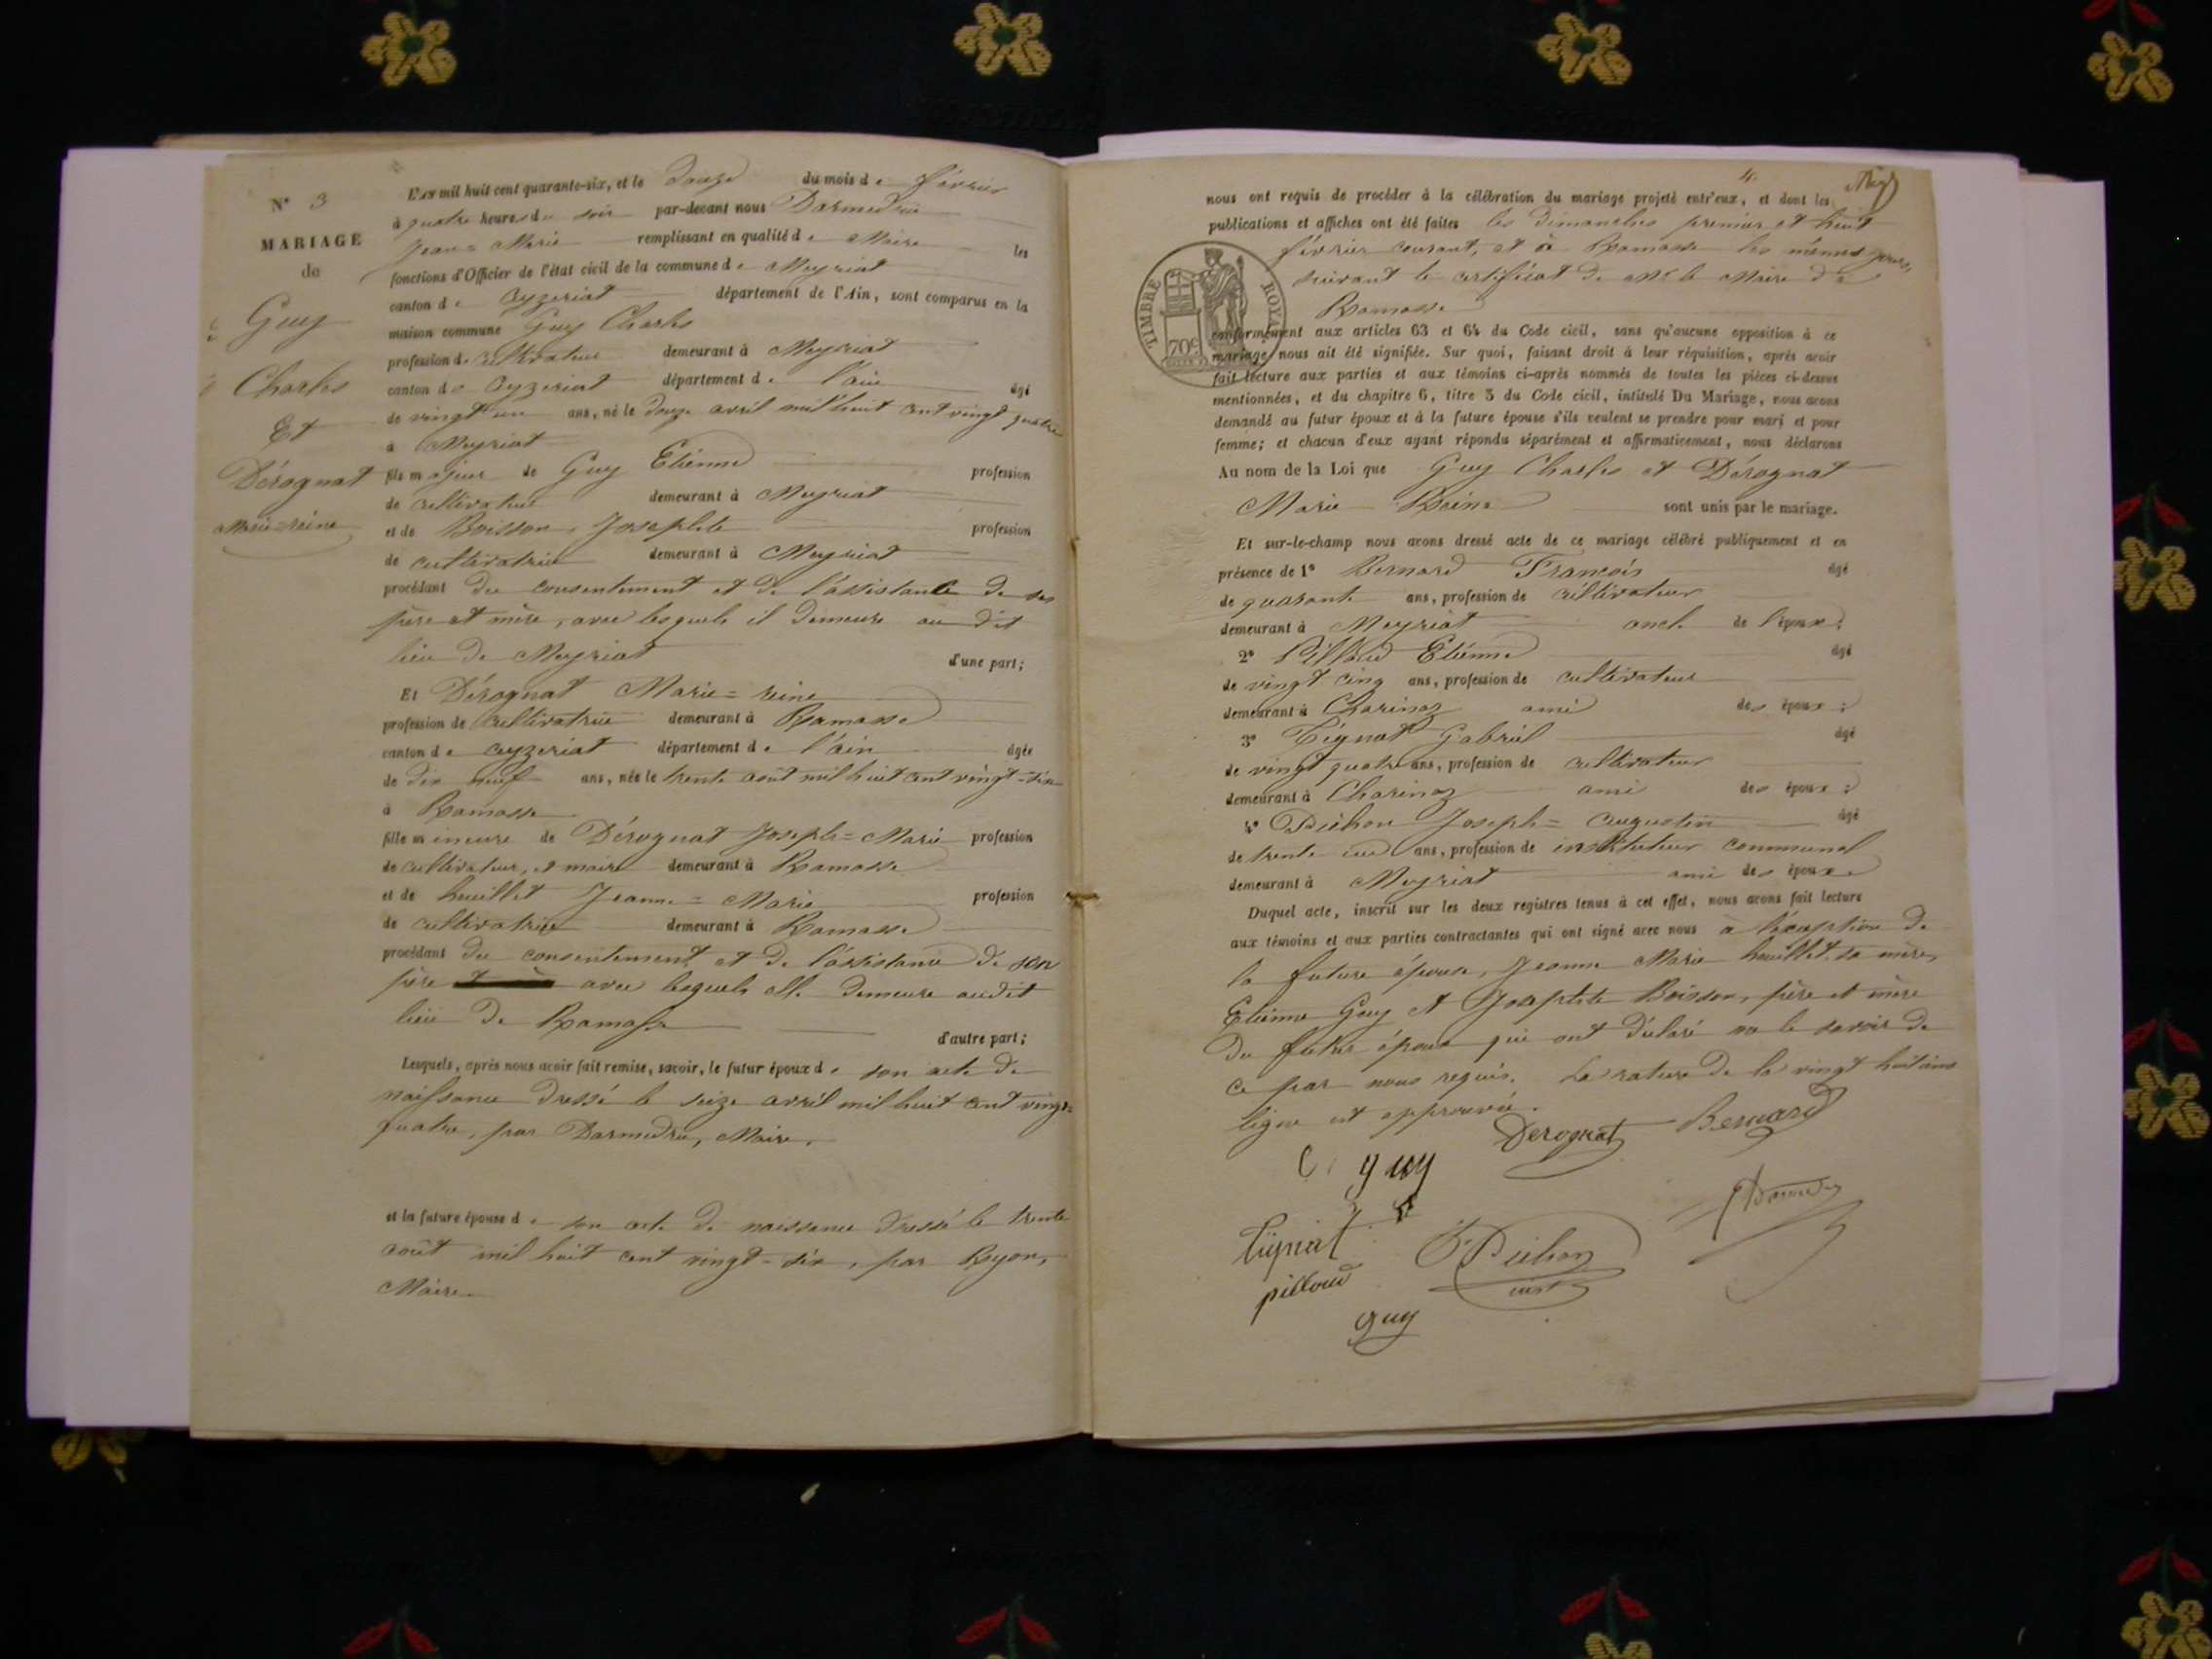 N° 3
MARIAGE
de
Guy
Charles
Et
Dérognat
Marie=reine
L'an mil huit cent quarante-six, et le douze du mois de février
à quatre heures du soir par-devant nous Darmedru
Jean=Marie remplissant en qualité de Maire les
fonctions d'Officier de l'état civil de la commune de Meyriat
canton de Ceyzeriat département de l'Ain, sont comparus en la
maison commune Guy Charles
profession de cultivateur demeurant à Meyriat
canton de Ceyzeriat département de l'ain âgé
de vingt un ans, né le douze avril mil huit cent vingt quatre
à Meyriat
fils majeur de Guy Etienne profession
de cultivateur demeurant à Meyriat
et de Boisson, Josephte profession
de cultivatrice demeurant à Meyriat
procédant du consentement et de l'assistance de ses
père et mère, avec lesquels il demeure au dit
lieu de Meyriat d'une part;
Et Dérognat Marie=reine
profession de cultivatrice demeurant à Ramasse
canton de ceyzeriat département de l'ain âgée
de dix neuf ans, née le trente août mil huit cent vingt=six
à Ramasse
fille mineure de Dérognat Joseph=Marie profession
de cultivateur, et maire demeurant à Ramasse
et de huillet Jeanne=Marie profession
de cultivatrice demeurant à Ramasse
procédant du consentement et de l'assistance de son
père avec lesquels elle demeure audit
lieu de Ramasse d'autre part;
Lesquels, après nous avoir fait remise, savoir, le futur époux de son acte de
naissance dressé le seize avril mil huit cent vingt=
quatre, par Darmedru, Maire,
et la future épouse de son acte de naissance dressé le trente
août mil huit cent vingt=six, par Royon,
Maire
4.
nous ont requis de procéder à la célébration du mariage projeté entr'eux, et dont les
publications et affiches ont été faites les dimanches premier et huit
février courant, et à Ramasse les mêmes jours,
suivant le certificat de Mr le Maire de
Ramasse
TIMBRE ROYAL
70c
conformément aux articles 63 et 64 du Code civil, sans qu'aucune opposition à ce
mariage nous ait été signifiée. Sur quoi, faisant droit à leur réquisition, après avoir
fait lecture aux parties et aux témoins ci-après nommés de toutes les pièces ci-dessus
mentionnées, et du chapitre 6, titre 5 du Code civil, intitulé Du Mariage, nous avons
demandé au futur époux et à la future épouse s'ils veulent se prendre pour mari et pour
femme; et chacun d'eux ayant répondu séparément et affirmativement, nous déclarons
Au nom de la Loi que Guy Charles et Dérognat
Marie Reine sont unis par le mariage.
Et sur-le-champ nous avons dressé acte de ce mariage célébré publiquement et en
présence de 1° Bernard François âgé
de quarante ans, profession de cultivateur
demeurant à Meyriat oncle de l'époux;
2° Pilloud Etienne âgé
de vingt cinq ans, profession de cultivateur
demeurant à Charinaz ami des époux;
3° Tignat Gabriel âgé
de vingt quatre ans, profession de cultivateur
demeurant à Charinaz ami des époux;
4° Pichon Joseph=Augustin âgé
de trente un ans, profession de instituteur communal
demeurant à Meyriat ami des époux
Duquel acte, inscrit sur les deux registres tenus à cet effet, nous avons fait lecture
aux témoins et aux parties contractantes qui ont signé avec nous à l'exception de
la future épouse, Jeanne Marie huillet sa mère,
Etienne Guy et Josephte Boisson, père et mère
du futur époux qui ont déclaré ne le savoir de
ce par nous requis. La rature de la vingt huitième
ligne est approuvée.
Derognat Bernard
C. guy
Tignat
pilloud
Pichon
inst
guy